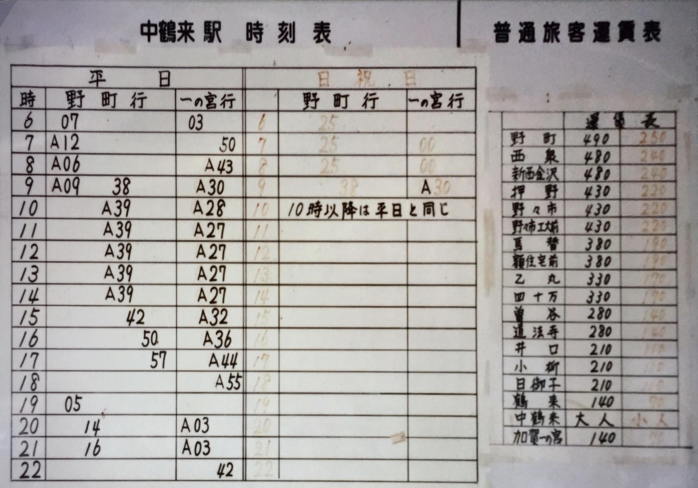 中鶴来駅 時刻表
平日 日祝日
時 野町行 一の宮行 野町行 一の宮行
6 07 03 6 25
7 A12 50 7 25 00
8 A06 A43 8 25 00
9 A09 38 A30 9 38 A30
10 A39 A28 10 10時以降は平日と同じ
11 A39 A27 11
12 A39 A27 12
13 A39 A27 13
14 A39 A27 14
15 42 A32 15
16 50 A36 16
17 57 A44 17
18 A55 18
19 05 19
20 14 A03 20
21 16 A03 21
22 42 22
普通旅客運賃表
運賃表
野町 490 250
西泉 480 240
新西金沢 480 240
押野 430 220
野々市 430 220
野々市工大前 430 220
馬替 380 190
額住宅前 380 190
乙丸 330 170
四十万 330 170
曽谷 280 140
道法寺 280 140
井口 210 110
小柳 210 110
日御子 210 110
鶴来 140 70
中鶴来 大人 小人
加賀一の宮 140 70